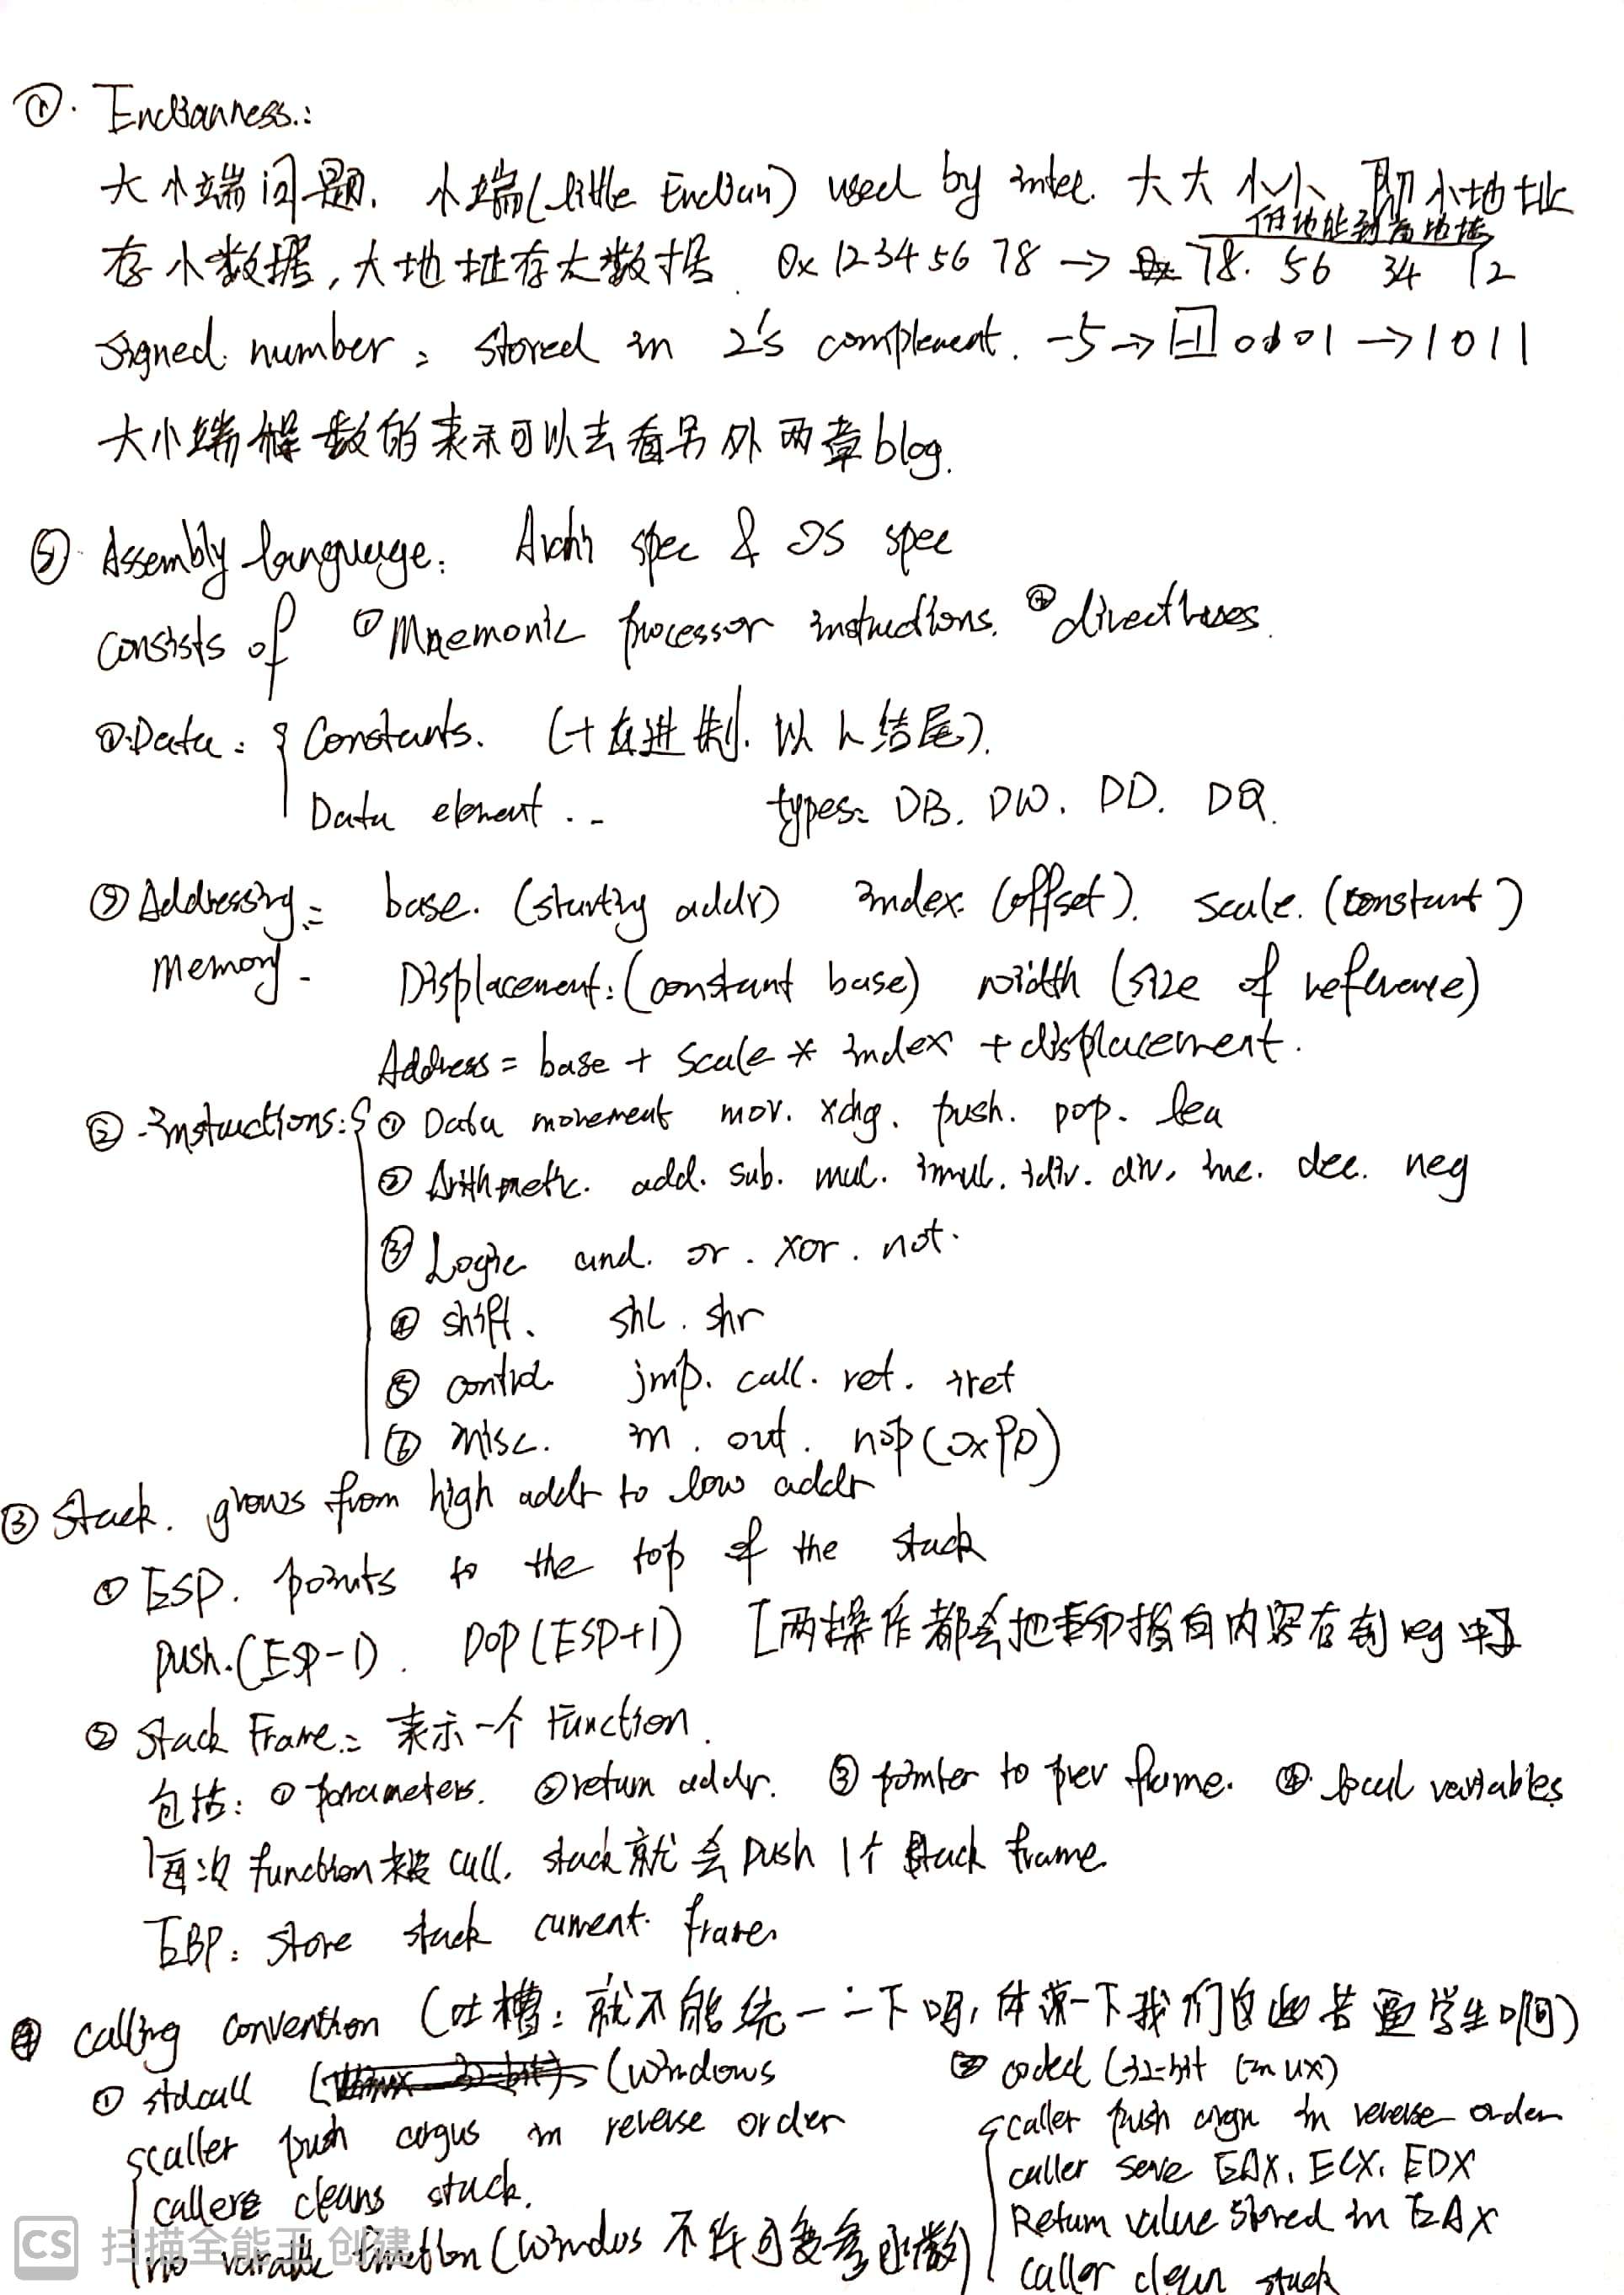 ①. Endianness:
大小端问题. 小端(little Endian) used by intel. 大大小小 即小地址
低地址到高地址
存小数据,大地址存大数据. 0x 12 34 56 78 → 78. 56 34 12
signed number: stored in 2's complement. -5 → 0101 → 1011
大小端 数的表示可以去看另外两章blog.
② Assembly language: Archi spec & OS spec
consists of ① Mnemonic processor instructions. ② directives.
①.Data: { Constants. (十六进制. 以 h 结尾).
Data element .. types: DB. DW. DD. DQ.
② Addressing: base. (starting addr) index. (offset). scale. (constant)
Memory. Displacement: (constant base) width (size of reference)
Address = base + scale * index + displacement.
② Instructions: { ① Data movement mov. xchg. push. pop. lea
② Arithmetic. add. sub. mul. imul. idiv. div. inc. dec. neg
③ Logic and. or. xor. not.
④ shift. shl. shr
⑤ control jmp. call. ret. iret
⑥ misc. in. out. nop (0x90)
③ Stack. grows from high addr to low addr
① ESP. points to the top of the stack
push.(ESP-1). pop(ESP+1) [两操作都会把 指向内容存到 reg 中]
② Stack Frame: 表示一个 function.
包括: ① parameters. ② return addr. ③ pointer to prev frame. ④. local variables
每次 function 被 call. stack 就会 push 1个 stack frame.
EBP: store stack current. frame.
④ calling convention (吐槽: 就不能统一一下吗, 体谅一下我们这些苦逼学生啊)
① stdcall (windows
② cdecl (32-bit linux)
{ caller push argus in reverse order
callee cleans stack.
no variable function (windows 不许可变参函数)
{ caller push argu in reverse order
caller save EAX, ECX, EDX
Return value stored in EAX
caller clean stack
CS 扫描全能王 创建